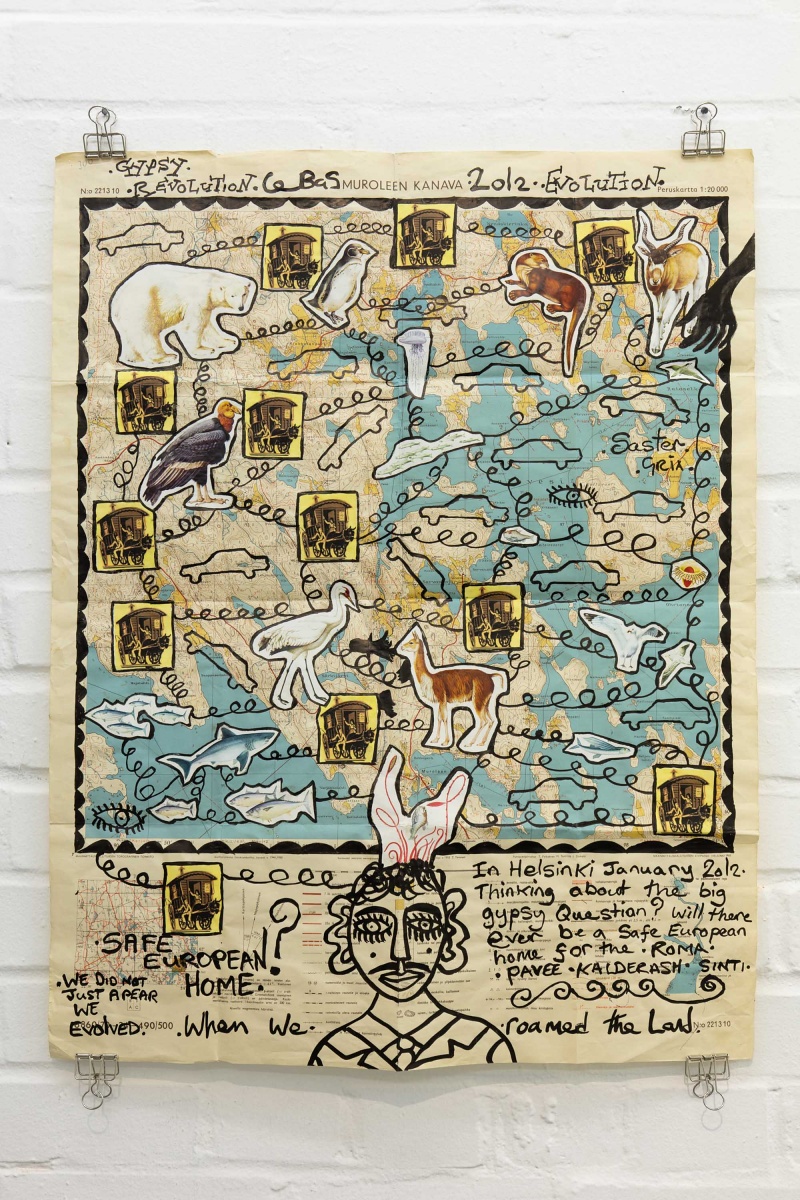 GYPSY.
N:o 2213 10 .REVOLUTION. Le BaS MUROLEEN KANAVA .2012. .EVOLUTION. Peruskartta 1:20 000
.Saster.
Grix.
In Helsinki January 2012.
Thinking about the big
gypsy Question? will there
ever be a Safe European
home for the .ROMA.
.PAVEE .KALDERASH. SINTI.
.SAFE
EUROPEAN?
HOME.
.WE DID NOT
JUST APEAR
WE
EVOLVED. 490/500 .When We. 20 .roamed the Land. N:o 2213 10